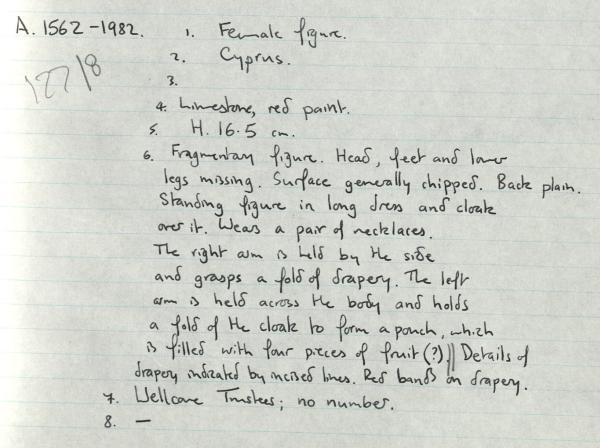 A. 1562-1982. 1. Female figure.
2. Cyprus.
127/8
3.
4. Limestone, red paint.
5. H. 16.5 cm.
6. Fragmentary figure. Head, feet and lower
legs missing. Surface generally chipped. Back plain.
Standing figure in long dress and cloak
over it. Wears a pair of necklaces.
The right arm is held by the side
and grasps a fold of drapery. The left
arm is held across the body and holds
a fold of the cloak to form a pouch, which
is filled with four pieces of fruit (?) || Details of
drapery indicated by incised lines. Red bands on drapery.
7. Wellcome Trustees; no number.
8. —